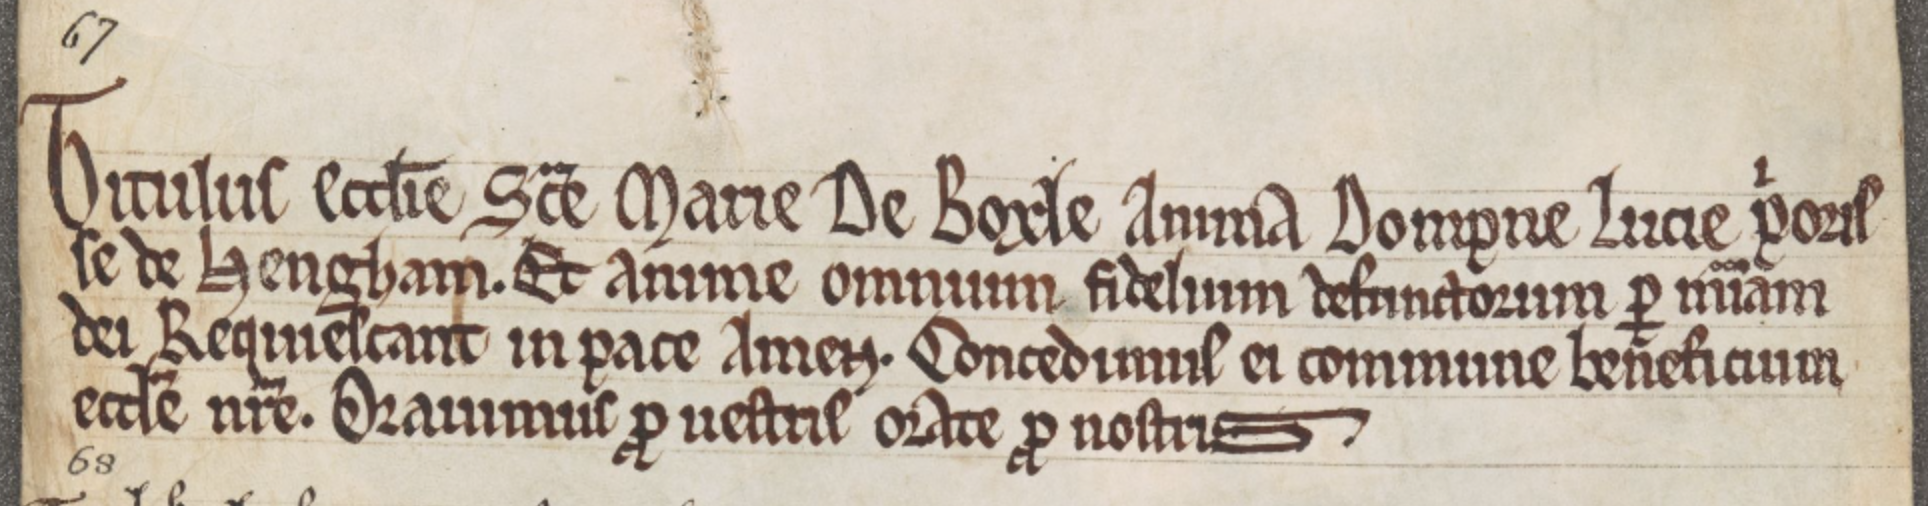 67
Titulus ecclie Sce Marie De Boxle Anima Dompne Lucie poris
se de Hengham. Et anime omnium fidelium defunctorum p miam
dei Requiescant in pace Amen. Concedimus ei commune beneficium
eccle nre. Orauimus p uestris orate p nostris
68